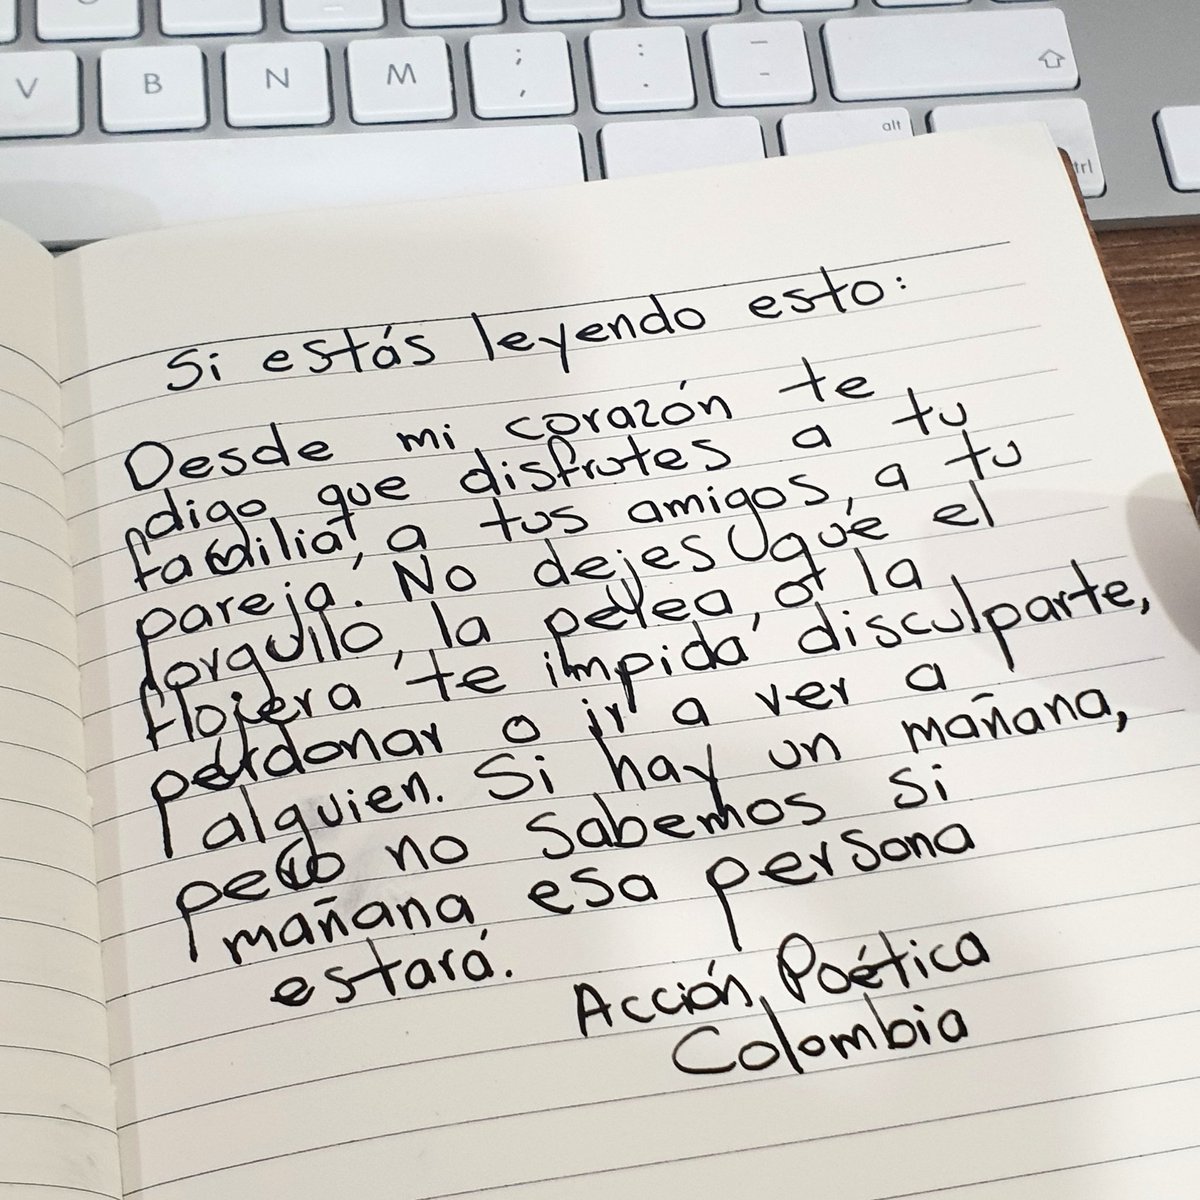 V B N M ; , : . – -
alt
trl
Si estás leyendo esto:
Desde mi corazón te
digo que disfrutes a tu
familia, a tus amigos, a tu
pareja. No dejes que el
orgullo, la pelea, o la
flojera te impida disculparte,
perdonar o ir a ver a
alguien. Si hay un mañana,
pero no sabemos si
mañana esa persona
estará.
Acción Poética
Colombia